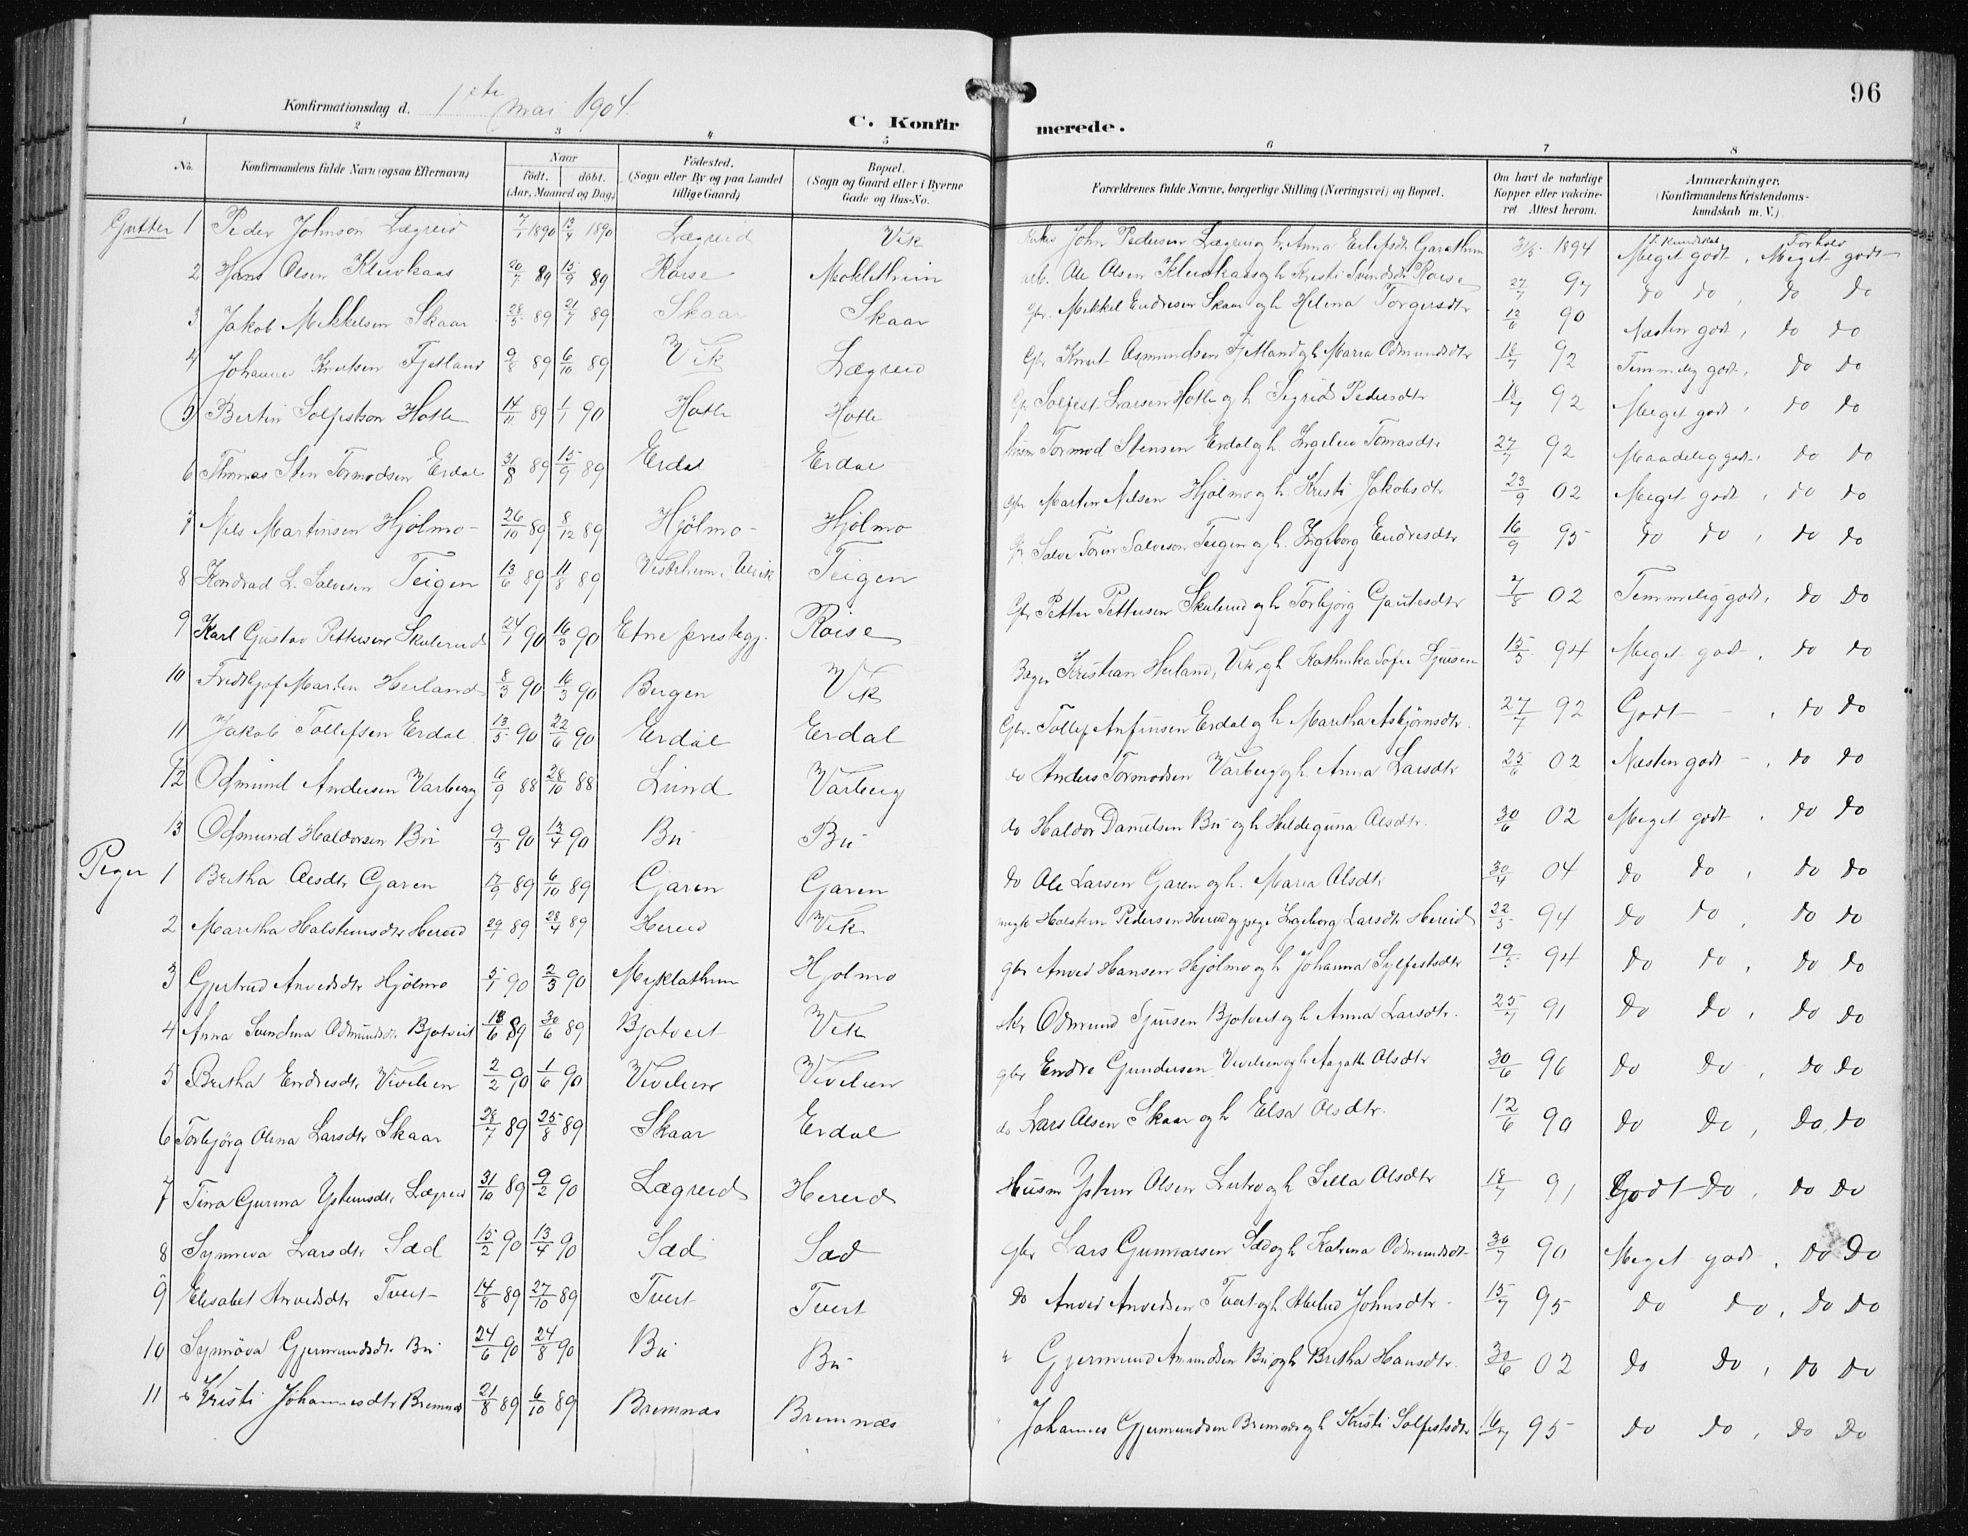 96
Konfirmationsdag d. 1ste mai 1904.
C. Konfirmerede.
1 2 3 4 5 6 7 8
No. Konfirmandens fulde Navn (ogsaa Efternavn) Naar født. døbt. (Aar, Maaned og Dag) Fødested. (Sogn eller By og paa Landet tillige Gaard) Bopæl. (Sogn og Gaard eller i Byerne Gade og Hus-No. Forældrenes fulde Navne, borgerlige Stilling (Næringsvei) og Bopæl. Om havt de naturlige Kopper eller vakcineret Attest herom. Anmærkninger. (Konfirmandens Kristendomskundskab m. V.)
Gutter 1 Peder Johnson Lægreid 7/4 1890 13/4 1890 Lægreid Vik John Pedersen Lægreid og h. Anna Eilefsdt Garathun 31/5 1894 Meget godt, Meget godt
2 Hans Olsen Kluvhaas 20/7 89 15/9 89 Røise Møklethuin arb. Ole Olsen Kluvhaas og h. Kristi Svendsdt Røise 27/7 97 do do, do do
3 Jakob Mikkelsen Skaar 28/5 89 21/7 89 Skaar Skaar gbr. Mikkel Endresen Skaar og h Helena Torgersdtr 12/6 90 Næsten godt, do do
4 Johannes Knutsen Fjetland 9/8 89 6/10 89 Vik Lægreid Gbr Knut Asmundsen Fjetland og h Maria Odmundsdtr 18/7 92 Temmelig godt, do do
5 Bertin Solfestson Hotle 14/11 89 1/1 90 Hotle Hotle Gbr Solfest Larsen Hotle og h. Sigrid Pedersdtr 18/7 92 Meget godt, do do
6 Thomas Sten Tormodsen Erdal 31/8 89 15/9 89 Erdal Erdal husm Tormod Stensen Erdal og h. Ingeleiv Tomasdtr 27/7 92 Maadelig godt, do do
7 Nils Martinsen Hjølmo 26/10 89 8/12 89 Hjølmo Hjølmo gbr Martin Nilsen Hjølmo og h. Kristi Jakobsdtr 23/9 02 Meget godt, do do
8 Kondrad L. Salvesen Teigen 13/6 89 11/8 89 Teigen Salve Torin Salveson Teigen og h. Ingeborg Endresdtr 16/9 95 do do, do do
9 Karl Gustav Pettersen Skulerud 24/1 90 16/3 90 Etne prestegj. Røise Gbr Petter Pettersen Skulerud og h Torbjørg Gautesdtr 7/8 02 Temmelig godt, do do
10 Fridthjof Martin Heiland 8/3 90 16/3 90 Bergen Vik Bager Kristian Heiland, Vik, og h Kathinka Sofie Sjursen 15/5 94 Meget godt, do do
11 Jakob Tollefsen Erdal 13/5 90 22/6 90 Erdal Erdal Gbr. Tollef Anfinsen Erdal og h Maritha Asbjørnsdtr. 27/7 92 Godt, do do
12 Odmund Andersen Varberg 6/9 88 28/10 88 Lund Varberg do Anders Tormodsen Varberg og h Anna Larsdtr 25/6 02 Næsten godt, do do
13 Odmund Haldorsen Bu 9/3 90 13/4 90 Bu Bu do Haldor Danielsen Bu og h Hildeguna Olsdtr. 30/6 02 Meget godt, do do
Piger 1 Britha Olesdtr Garen 17/9 89 6/10 89 Garen Garen do Ole Larsen Garen og h. Maria Olsdtr 30/4 04 do do, do do
2 Maritha Halsteinsdtr Hereid 29/1 89 28/4 89 Hereid Vik Halstein Pedersen Hereid og pige Ingeborg Larsdtr Hereid 22/5 94 do do, do do
3 Gjertrud Anvedsdtr Hjølmo 5/1 90 2/3 90 Myklathun Hjolmo gbr Anved Hansen Hjølmo og h Johanna Sylfestsdtr 19/5 94 do do, do do
4 Anna Svendina Odmundsdtr Bjotveit 18/6 89 30/6 89 Bjotveit Vik Odmund Sjursen Bjotveit og h Anna Larsdtr. 25/7 91 do do, do do
5 Britha Endresdtr Vivelien 2/2 90 1/6 90 Vivelien Vivelien gbr Endre Gundersen Vivelien og h Aagatha Olsdtr 30/6 96 do do, do do
6 Torbjørg Olena Larsdtr Skaar 28/7 89 25/8 89 Skaar Erdal do Lars Olsen Skaar og h Elsa Olsdtr. 12/6 90 do do, do do
7 Tina Gurina Ysteinsdtr Lægreid 31/10 89 9/2 90 Lægreid Hereid Husm Ystein Olsen Lutro og h Silla Olsdtr 18/7 91 Godt do, do do
8 Synneva Larsdtr Sæd 15/2 90 13/4 90 Sæd Sæd gbr Lars Gunnarsen Sæd og h Katrina Odmundsdt 30/7 90 Meget godt, do do
9 Elisabet Anvedsdtr Tveit 14/8 89 27/10 89 Tveit Tveit do Anved Anvedsen Tveit og h. Johnsdtr 15/7 95 do do, do do
10 Synnøva Gjermundsdtr Bu 24/6 90 24/8 90 Bu Bu " Gjermund Amundsen Bu og h Britha Hansdtr. 30/6 02 do do, do do
11 Kristi Johannesdtr Bremnæs 21/8 89 6/10 89 Bremnæs Bremnæs " Johannes Gjermundsen Bremnæs og h Kristi Solfestsdtr 16/7 95 do do, do do